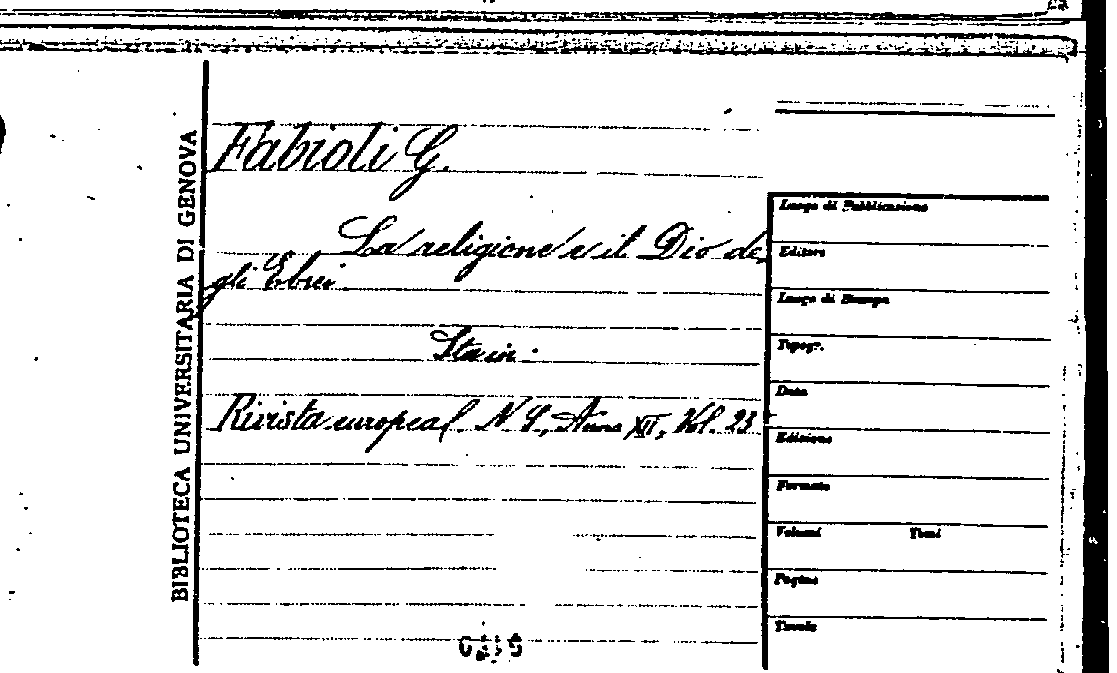 BIBLIOTECA UNIVERSITARIA DI GENOVA
Fabioli G.
La religione e il Dio de
gli Ebrei.
Sta in:
Rivista europea. N. S., Anno XII, Vol. 23
Luogo di Pubblicazione
Editore
Luogo di Stampa
Topogr.
Data
Edizione
Formato
Volumi Tomi
Pagine
Tavole